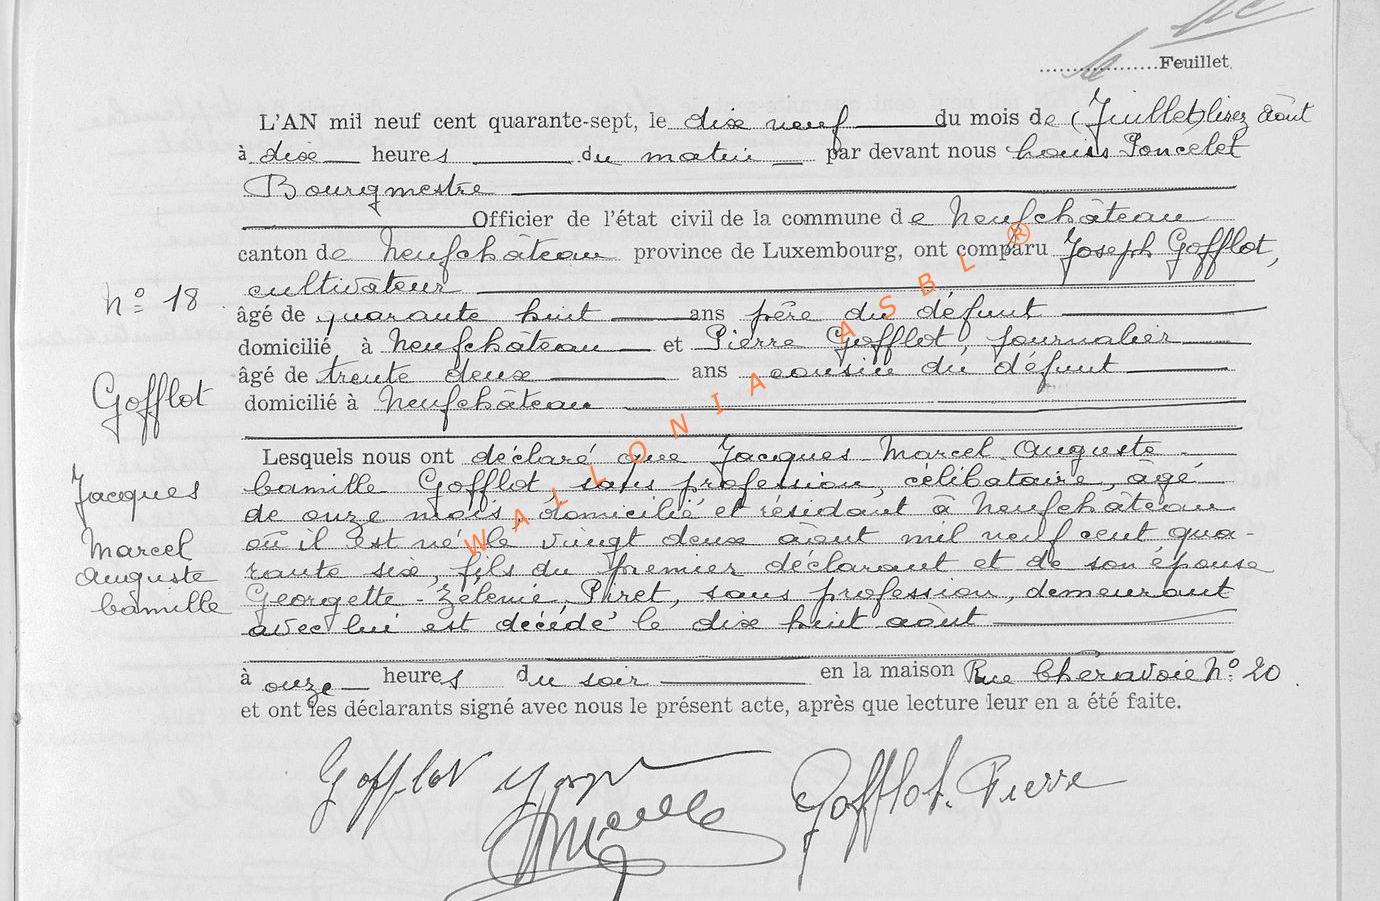 Feuillet
L'AN mil neuf cent quarante-sept, le dix neuf du mois de (Juillet) lisez août
à dix heures du matin par devant nous Louis Poncelet
Bourgmestre
Officier de l'état civil de la commune de Neufchâteau
canton de Neufchâteau province de Luxembourg, ont comparu Joseph Gofflot,
cultivateur
âgé de quarante huit ans père du défunt
domicilié à Neufchâteau et Pierre Gofflot, journalier
âgé de trente deux ans cousin du défunt
domicilié à Neufchâteau
Lesquels nous ont déclaré que Jacques Marcel Auguste
Camille Gofflot, sans profession, célibataire, âgé
de onze mois, domicilié et résidant à Neufchâteau
où il est né le vingt deux août mil neuf cent qua-
rante six, fils du premier déclarant et de son épouse
Georgette-Zélenie Piret, sans profession, demeurant
avec lui est décédé le dix huit août
à onze heures du soir en la maison Rue Cheravoie N° 20
et ont les déclarants signé avec nous le présent acte, après que lecture leur en a été faite.
N° 18
Gofflot
Jacques
Marcel
Auguste
Camille
Gofflot Gofflot. Pierre
WALLONIA ASBL ®